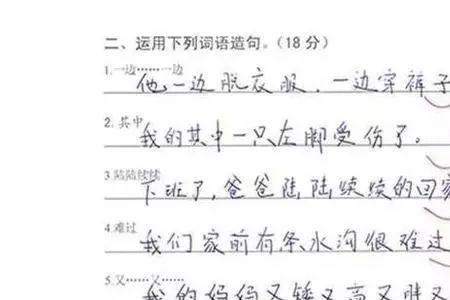 二、运用下列词语造句。(18分)
1.一边……一边
他一边脱衣服，一边穿裤子
2.其中
我的其中一只左脚受伤了。
3.陆陆续续
下班了，爸爸陆陆续续的回家
4.难过
我们家前有条水沟很难过
5.又……又……
我的妈妈又矮又高又胖又